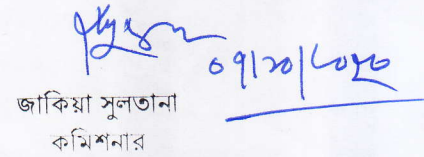 ০৭/১০/২০২০
জাকিয়া সুলতানা
কমিশনার